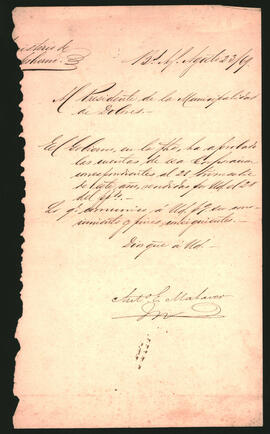 Bs. As. Agosto 23/61
Al Presidente de la Municipalidad
de Dolores.
El Gobierno, en la fha, ha aprobado
las cuentas de esa Corporacion
correspondientes al 2º trimestre
de este año, rendidas por Ud. el 28
del
Lo q. comunico á Ud. pa. su cono-
cimiento y fines consiguientes.
Dios gue. á Ud.
Anto. E. Malaver